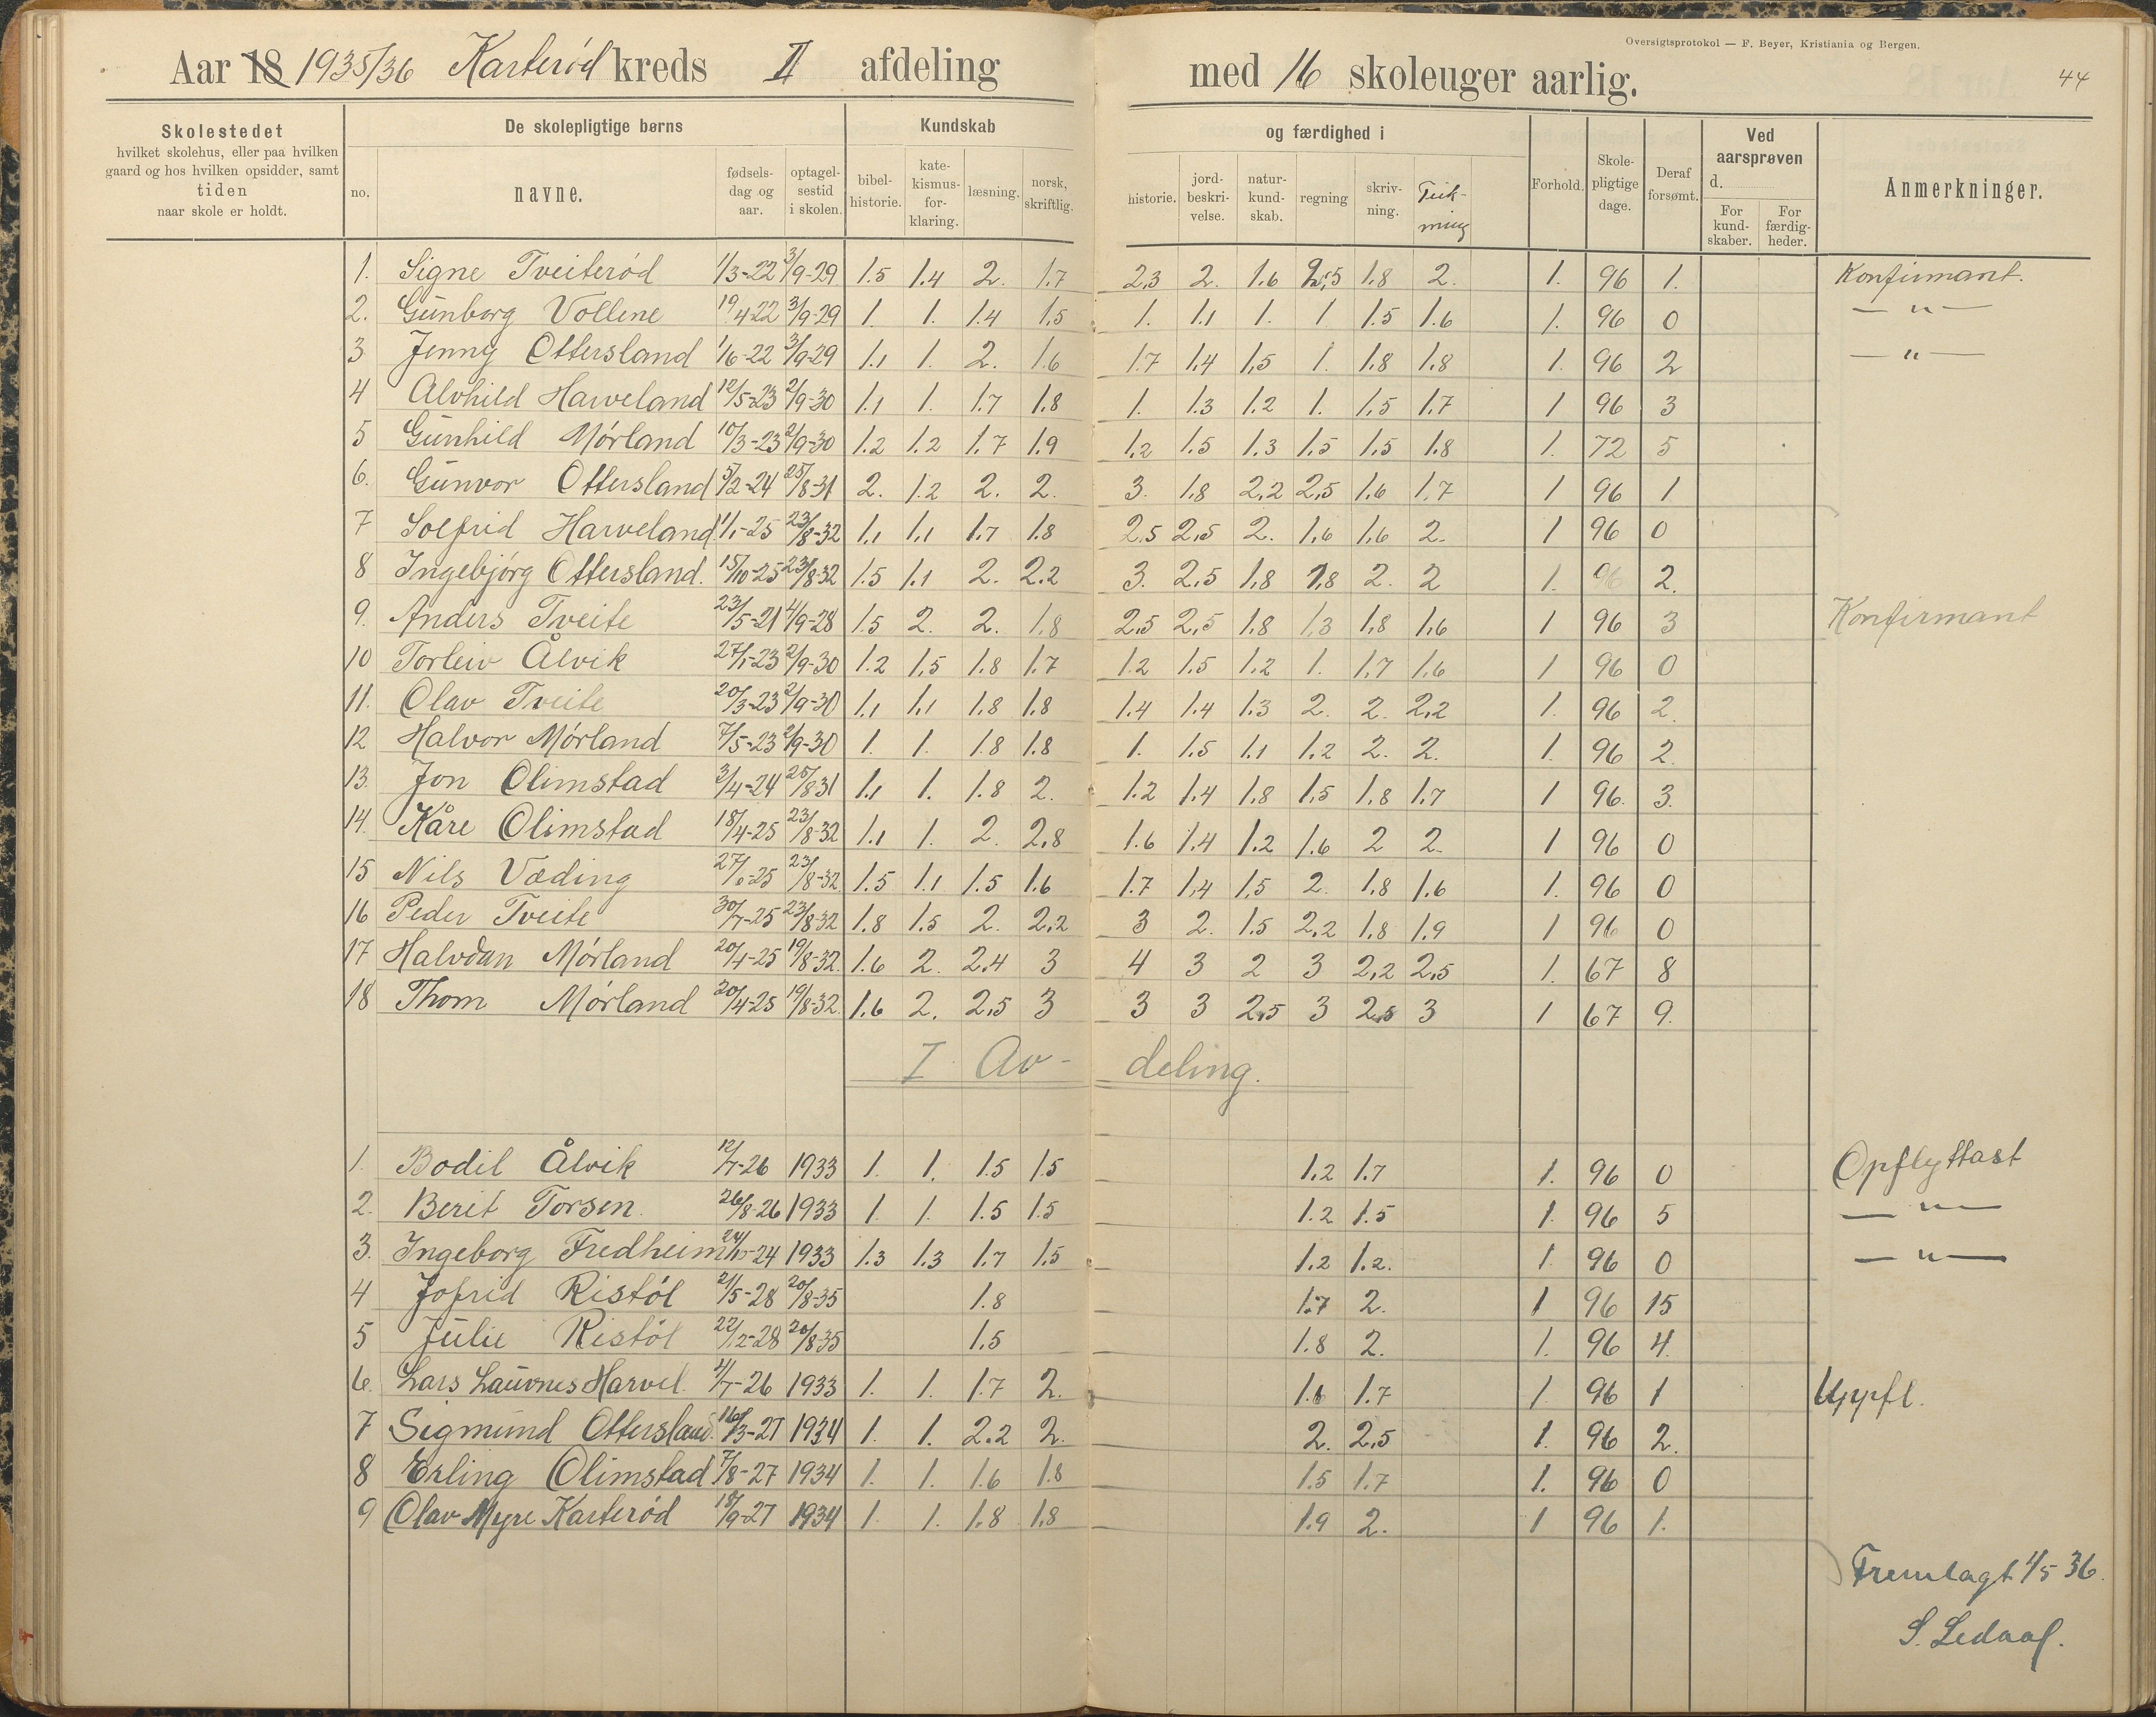 Oversigtsprotokol — F. Beyer, Kristiania og Bergen.
44
Aar 18 1935/36 Karterød kreds II afdeling med 16 skoleuger aarlig.
Skolestedet hvilket skolehus, eller paa hvilken gaard og hos hvilken opsidder, samt tiden naar skole er holdt.
De skolepligtige børns
no. navne. fødsels-dag og aar. optagel-sestid i skolen.
Kundskab og færdighed i
bibel-historie. kate-kismus-for-klaring. læsning. norsk, skriftlig. historie. jord-beskri-velse. natur-kund-skab. regning skriv-ning. Teik-ning
Forhold. Skole-pligtige dage. Deraf forsømt. Ved aarsprøven d. For kund-skaber. For færdig-heder. Anmerkninger.
1. Signe Tveiterød 1/3-22 3/9-29 1.5 1.4 2. 1.7 2,3 2. 1.6 2,5 1.8 2. 1. 96 1. Konfirmant.
2. Gunborg Vollene 19/4-22 3/9-29 1. 1. 1.4 1,5 1. 1.1 1. 1 1.5 1.6 1. 96 0 — " —
3 Jenny Ottersland 1/6-22 3/9-29 1.1 1. 2. 1.6 1.7 1,4 1,5 1. 1,8 1,8 1. 96 2 — " —
4 Alvhild Harveland 12/5-23 2/9-30 1.1 1. 1.7 1.8 1. 1.3 1.2 1. 1.5 1.7 1 96 3
5 Gunhild Mórland 10/3-23 2/9-30 1.2 1.2 1.7 1.9 1.2 1.5 1.3 1.5 1.5 1.8 1. 72 5
6. Gunvor Ottersland 5/2-24 25/8-31 2. 1.2 2. 2. 3. 1.8 2,2 2,5 1.6 1.7 1 96 1
7 Solfrid Harveland 1/1-25 23/8-32 1.1 1.1 1.7 1.8 2.5 2,5 2. 1.6 1.6 2. 1 96 0
8 Ingebjórg Ottersland. 15/10-25 23/8-32 1.5 1.1 2. 2.2 3. 2,5 1,8 1,8 2. 2 1. 96 2.
9. Anders Tveite 23/5-21 4/9-28 1.5 2. 2. 1.8 2,5 2,5 1.8 1.3 1.8 1.6 1 96 3 Konfirmant
10 Torleiv Ålvik 27/1-23 2/9-30 1.2 1,5 1.8 1.7 1.2 1.5 1.2 1. 1.7 1.6 1 96 0
11. Olav Tveite 20/3-23 2/9-30 1.1 1.1 1.8 1.8 1.4 1.4 1.3 2. 2. 2,2 1. 96 2.
12 Halvor Mórland 7/5-23 2/9-30 1. 1. 1.8 1.8 1. 1.5 1.1 1.2 2. 2. 1. 96 2.
13. Jon Olimstad 3/4-24 25/8 31 1.1 1. 1.8 2. 1.2 1.4 1.8 1,5 1.8 1.7 1 96. 3.
14. Kåre Olimstad 18/4-25 23/8-32 1.1 1. 2. 2,8 1.6 1.4 1.2 1.6 2 2. 1 96 0
15 Nils Væding 27/6-25 23/8-32. 1.5 1.1 1.5 1.6 1.7 1,4 1,5 2. 1.8 1.6 1. 96 0
16 Peder Tveite 30/7-25 23/8-32 1.8 1.5 2. 2,2 3 2. 1.5 2,2 1.8 1.9 1 96 0
17 Halvdan Mórland 20/4-25 19/8-32. 1.6 2. 2,4 3 4 3 2 3 2,2 2,5 1. 67 8
18 Thom Mórland 20/4-25 19/8-32. 1.6 2. 2,5 3 3 3 2,5 3 2,5 3 1 67 9.
I Av-deling.
1. Bodil Ålvik 12/7-26 1933 1. 1. 1.5 1.5 1.2 1.7 1. 96 0 Opflyttast
2. Berit Torsen. 26/8-26 1933 1 1. 1.5 1.5 1.2 1.5 1. 96 5 — " —
3. Ingeborg Fredheim -24 1933 1.3 1.3 1.7 1.5 1.2 1.2. 1. 96 0 — " —
4 Jofrid Ristól 21/5-28 20/8-35 1.8 1.7 2. 1 96 15
5 Julie Ristól 22/12-28 20/8 35 1.5 1.8 2. 1. 96 4.
6. Lars Lauvnes Harvel. 4/7-26 1933 1. 1. 1.7 2. 1.7 1. 96 1 Uppfl.
7 Sigmund Ottersland. 16/3-27 1934 1. 1. 2.2 2. 2. 2,5 1. 96 2.
8 Erling Olimstad 7/8-27 1934 1. 1. 1.6 1.8 1.5 1.7 1. 96 0
9 Olav Myre Karterød 18/9-27 1934 1. 1. 1.8 1,8 1.9 2. 1 96 1.
Fremlagt 4/5 36.
S. Ledaal.